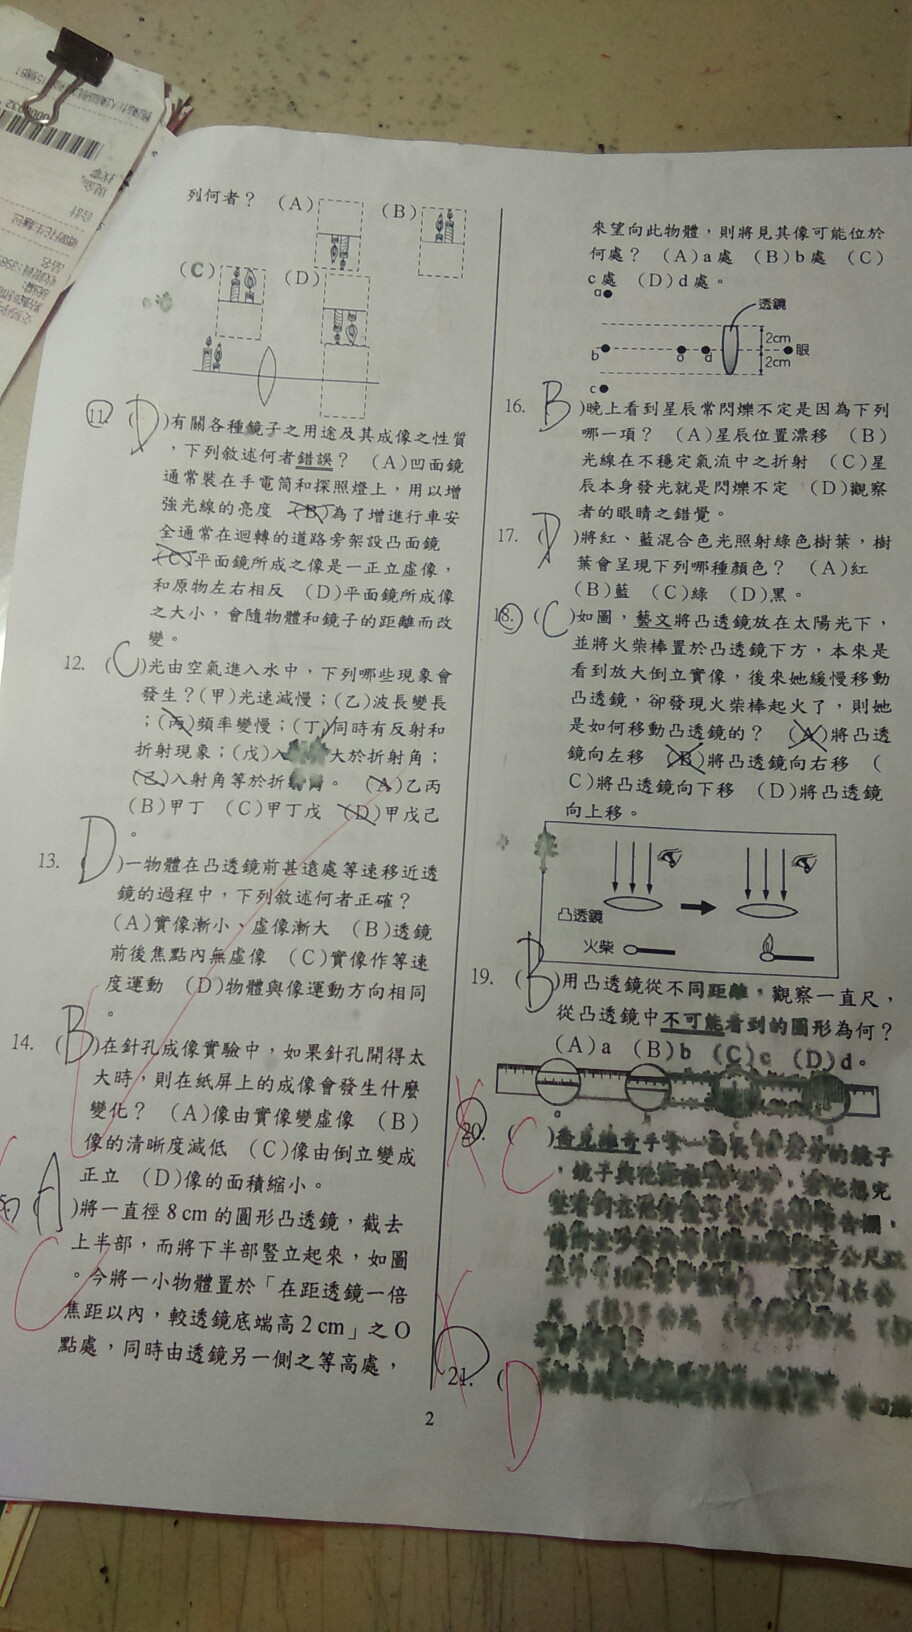 列何者？ (A) (B)
(C) (D)
11. (D)有關各種鏡子之用途及其成像之性質
，下列敘述何者錯誤？ (A)凹面鏡
通常裝在手電筒和探照燈上，用以增
強光線的亮度 (B)為了增進行車安
全通常在迴轉的道路旁架設凸面鏡
(C)平面鏡所成之像是一正立虛像，
和原物左右相反 (D)平面鏡所成像
之大小，會隨物體和鏡子的距離而改
變。
12. (C)光由空氣進入水中，下列哪些現象會
發生？(甲)光速減慢；(乙)波長變長
；(丙)頻率變慢；(丁)同時有反射和
折射現象；(戊)入 大於折射角；
(己)入射角等於折 。 (A)乙丙
(B)甲丁 (C)甲丁戊 (D)甲戊己
。
13. (D)一物體在凸透鏡前甚遠處等速移近透
鏡的過程中，下列敘述何者正確？
(A)實像漸小、虛像漸大 (B)透鏡
前後焦點內無虛像 (C)實像作等速
度運動 (D)物體與像運動方向相同
。
14. (B)在針孔成像實驗中，如果針孔開得太
大時，則在紙屏上的成像會發生什麼
變化？ (A)像由實像變虛像 (B)
像的清晰度減低 (C)像由倒立變成
正立 (D)像的面積縮小。
(A)將一直徑8cm的圓形凸透鏡，截去
C 上半部，而將下半部豎立起來，如圖
。今將一小物體置於「在距透鏡一倍
焦距以內，較透鏡底端高2cm」之O
點處，同時由透鏡另一側之等高處，
來望向此物體，則將見其像可能位於
何處？ (A)a處 (B)b處 (C)
c處 (D)d處。
a
透鏡
2cm
b o d 眼
2cm
c
16. (B)晚上看到星辰常閃爍不定是因為下列
哪一項？ (A)星辰位置漂移 (B)
光線在不穩定氣流中之折射 (C)星
辰本身發光就是閃爍不定 (D)觀察
者的眼睛之錯覺。
17. (D)將紅、藍混合色光照射綠色樹葉，樹
葉會呈現下列哪種顏色？ (A)紅
(B)藍 (C)綠 (D)黑。
18. (C)如圖，藝文將凸透鏡放在太陽光下，
並將火柴棒置於凸透鏡下方，本來是
看到放大倒立實像，後來她緩慢移動
凸透鏡，卻發現火柴棒起火了，則她
是如何移動凸透鏡的？ (A)將凸透
鏡向左移 (B)將凸透鏡向右移 (
C)將凸透鏡向下移 (D)將凸透鏡
向上移。
凸透鏡
火柴
19. (B)用凸透鏡從不同距離，觀察一直尺，
從凸透鏡中不可能看到的圖形為何？
(A)a (B)b (C)c (D)d。
a
20. ( C
的鏡子
21. ( D
2